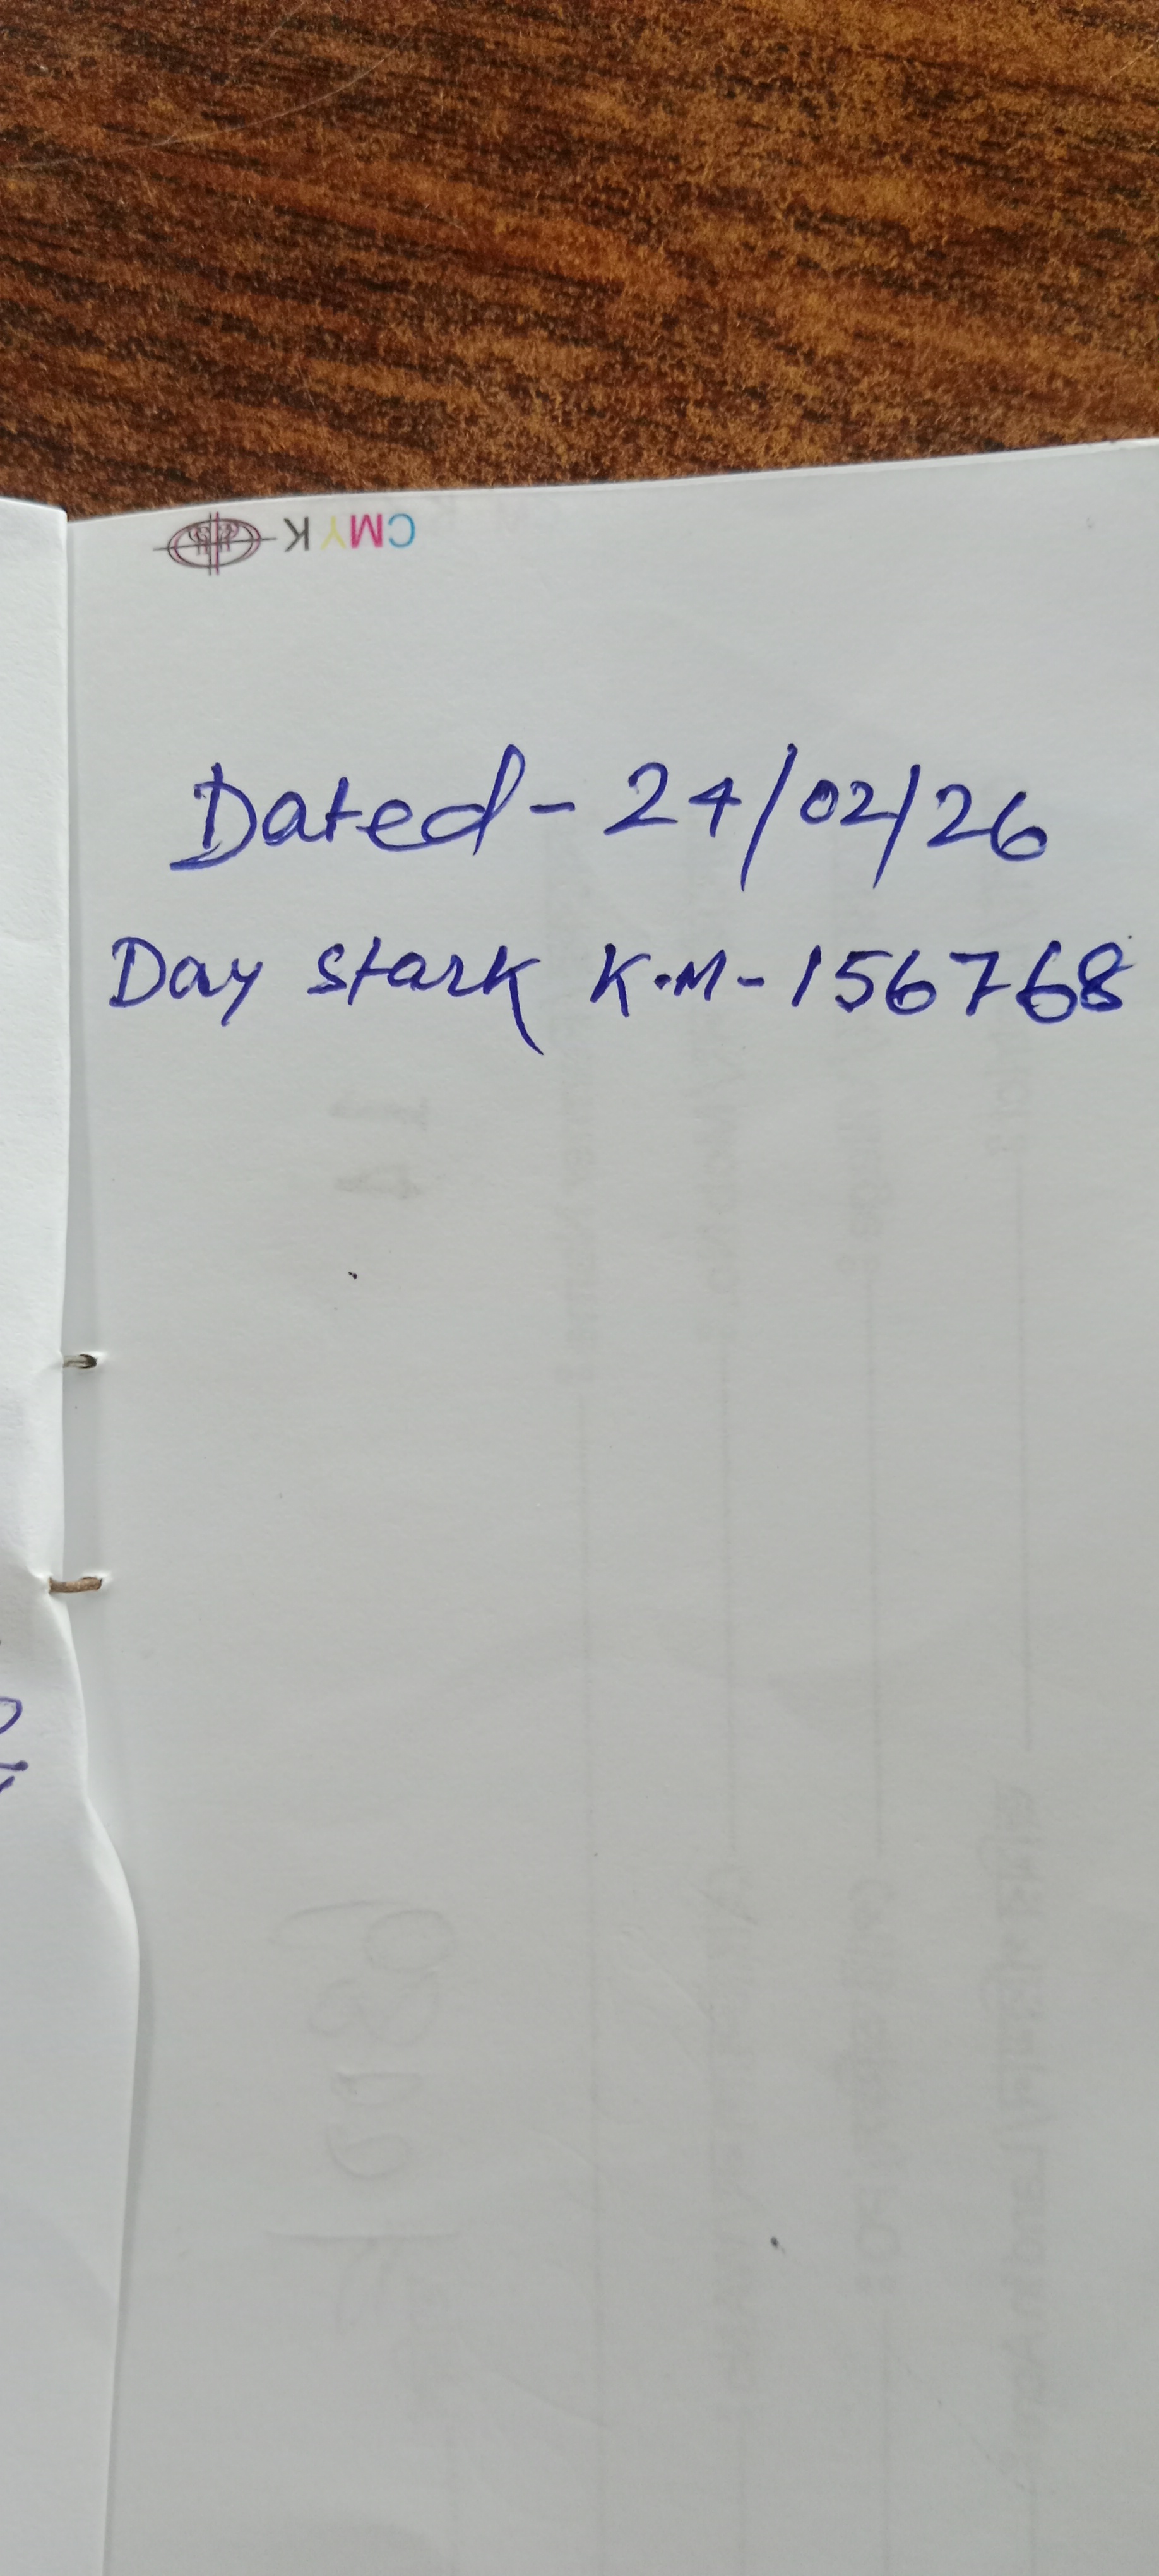 CMYK
Dated - 24/02/26
Day stark K.M - 156768